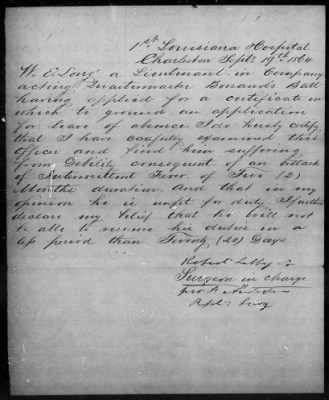 1st Louisiana Hospital
Charleston Sept: 19th 1864
W. E. Long a Lieutenant in Company
acting Quartermaster Bonauds Batt
having applied for a certificate on
which to ground an application
for leave of absence. I do hereby certify
that I have carefully examined this
officer and find him suffering
from Debility consequent of an attack
of Intermittent Fever. of Two (2)
Months duration. And that in my
opinion he is unfit for duty. I further
declare my belief that he will not
be able to resume his duties in a
less period than Twenty (20) Days
Robert Lebby Jr
Surgeon in charge
per
Surg